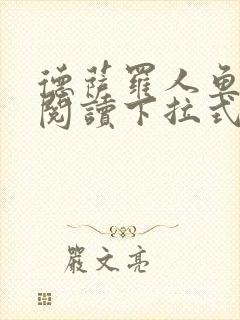 德薩羅人魚
閱讀下拉式
嚴文亮